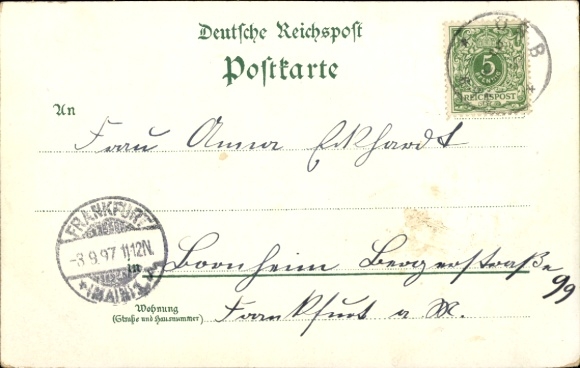 Deutsche Reichspost
Postkarte
5
PFENNIG
REICHSPOST
An
Frau Anna Eckhardt
FRANKFURT
-3.9.97 11-12N.
(MAIN)
in Bornheim Bergerstraße 99
Wohnung
(Straße und Hausnummer)
Frankfurt a M.